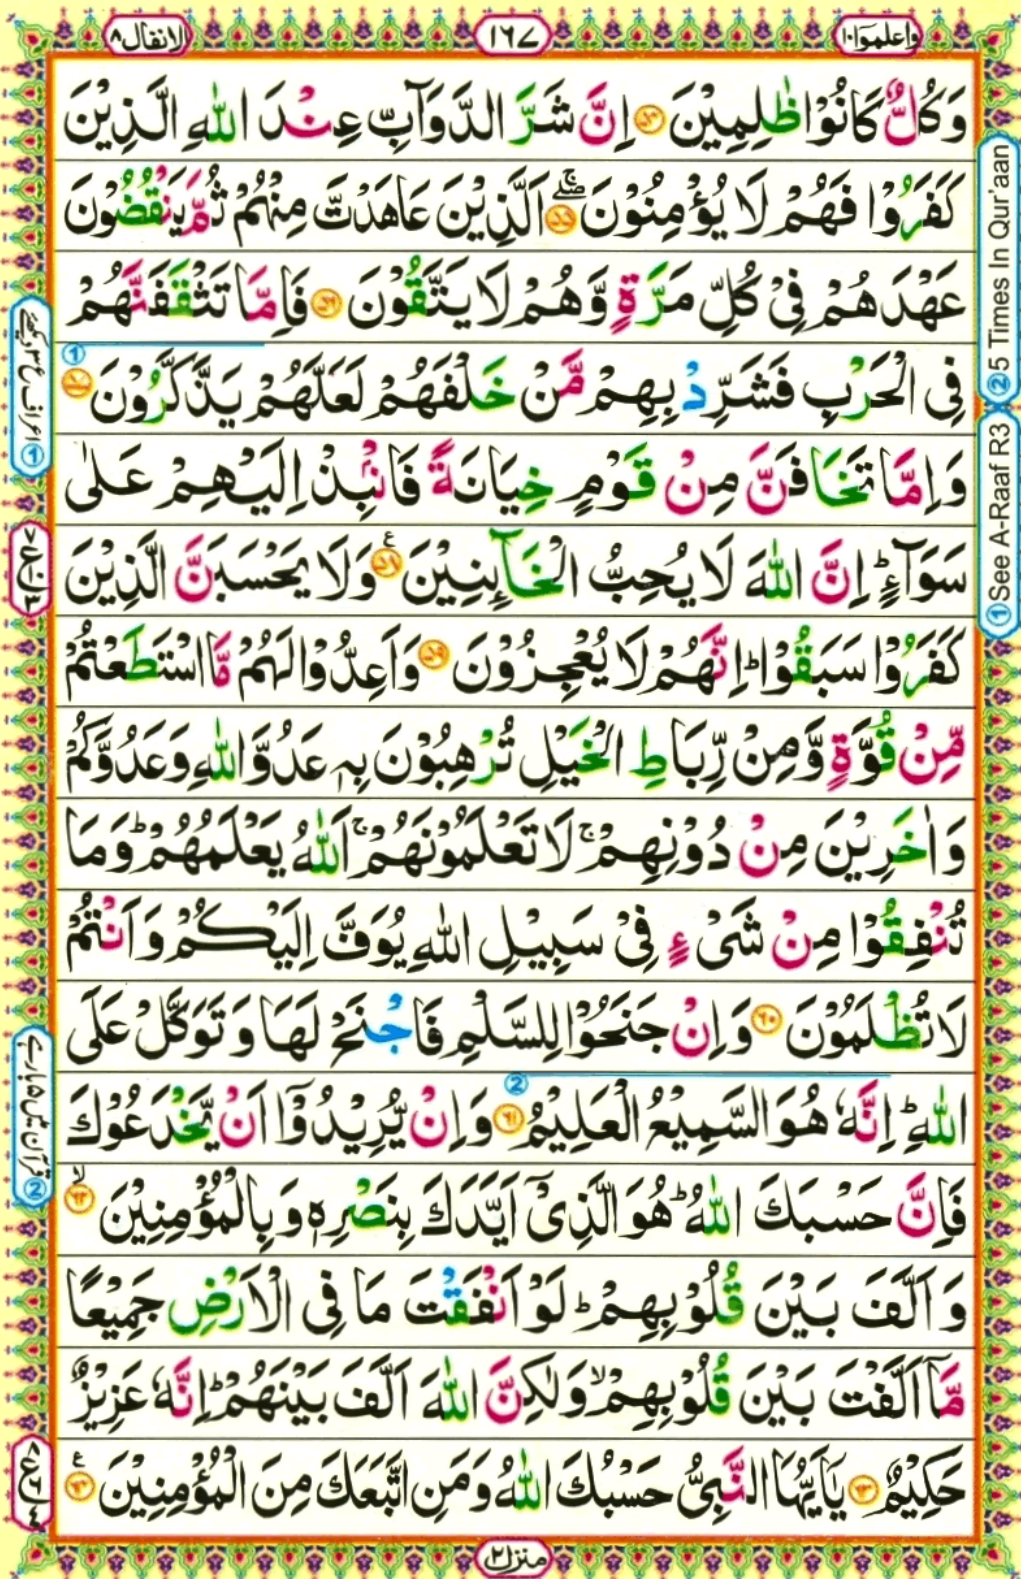 واعلموا ١٠
١٦٧
الانفال ٨
وَكُلٌّ كَانُوْا ظٰلِمِيْنَ ۝۵۴ اِنَّ شَرَّ الدَّوَآبِّ عِنْدَ اللّٰهِ الَّذِيْنَ
كَفَرُوْا فَهُمْ لَا يُؤْمِنُوْنَ ۖۚ۝۵۵ اَلَّذِيْنَ عَاهَدْتَّ مِنْهُمْ ثُمَّ يَنْقُضُوْنَ
عَهْدَهُمْ فِيْ كُلِّ مَرَّةٍ وَّهُمْ لَا يَتَّقُوْنَ ۝۵۶ فَاِمَّا تَثْقَفَنَّهُمْ
فِي الْحَرْبِ فَشَرِّدْ بِهِمْ مَّنْ خَلْفَهُمْ لَعَلَّهُمْ يَذَّكَّرُوْنَ ۝۵۷ ①
وَاِمَّا تَخَافَنَّ مِنْ قَوْمٍ خِيَانَةً فَانْۢبِذْ اِلَيْهِمْ عَلٰى
سَوَآءٍ ؕ اِنَّ اللّٰهَ لَا يُحِبُّ الْخَآئِنِيْنَ ۝۵۸ ع وَلَا يَحْسَبَنَّ الَّذِيْنَ
كَفَرُوْا سَبَقُوْا ؕ اِنَّهُمْ لَا يُعْجِزُوْنَ ۝۵۹ وَاَعِدُّوْا لَهُمْ مَّا اسْتَطَعْتُمْ
مِّنْ قُوَّةٍ وَّمِنْ رِّبَاطِ الْخَيْلِ تُرْهِبُوْنَ بِهٖ عَدُوَّ اللّٰهِ وَعَدُوَّكُمْ
وَاٰخَرِيْنَ مِنْ دُوْنِهِمْ ۚ لَا تَعْلَمُوْنَهُمْ ۚ اَللّٰهُ يَعْلَمُهُمْ ؕ وَمَا
تُنْفِقُوْا مِنْ شَيْءٍ فِيْ سَبِيْلِ اللّٰهِ يُوَفَّ اِلَيْكُمْ وَاَنْتُمْ
لَا تُظْلَمُوْنَ ۝۶۰ وَاِنْ جَنَحُوْا لِلسَّلْمِ فَاجْنَحْ لَهَا وَتَوَكَّلْ عَلَى
اللّٰهِ ؕ اِنَّهٗ هُوَ السَّمِيْعُ الْعَلِيْمُ ۝۶۱ ② وَاِنْ يُّرِيْدُوْٓا اَنْ يَّخْدَعُوْكَ
فَاِنَّ حَسْبَكَ اللّٰهُ ؕ هُوَ الَّذِيْٓ اَيَّدَكَ بِنَصْرِهٖ وَبِالْمُؤْمِنِيْنَ ۙ۝۶۲
وَاَلَّفَ بَيْنَ قُلُوْبِهِمْ ؕ لَوْ اَنْفَقْتَ مَا فِي الْاَرْضِ جَمِيْعًا
مَّآ اَلَّفْتَ بَيْنَ قُلُوْبِهِمْ ۙ وَلٰكِنَّ اللّٰهَ اَلَّفَ بَيْنَهُمْ ؕ اِنَّهٗ عَزِيْزٌ
حَكِيْمٌ ۝۶۳ يٰٓاَيُّهَا النَّبِيُّ حَسْبُكَ اللّٰهُ وَمَنِ اتَّبَعَكَ مِنَ الْمُؤْمِنِيْنَ ۝۶۴ ع
② 5 Times In Qur'aan
① See A-Raaf R3
② قرآن میں ۵ بار ہے
منزل ٢